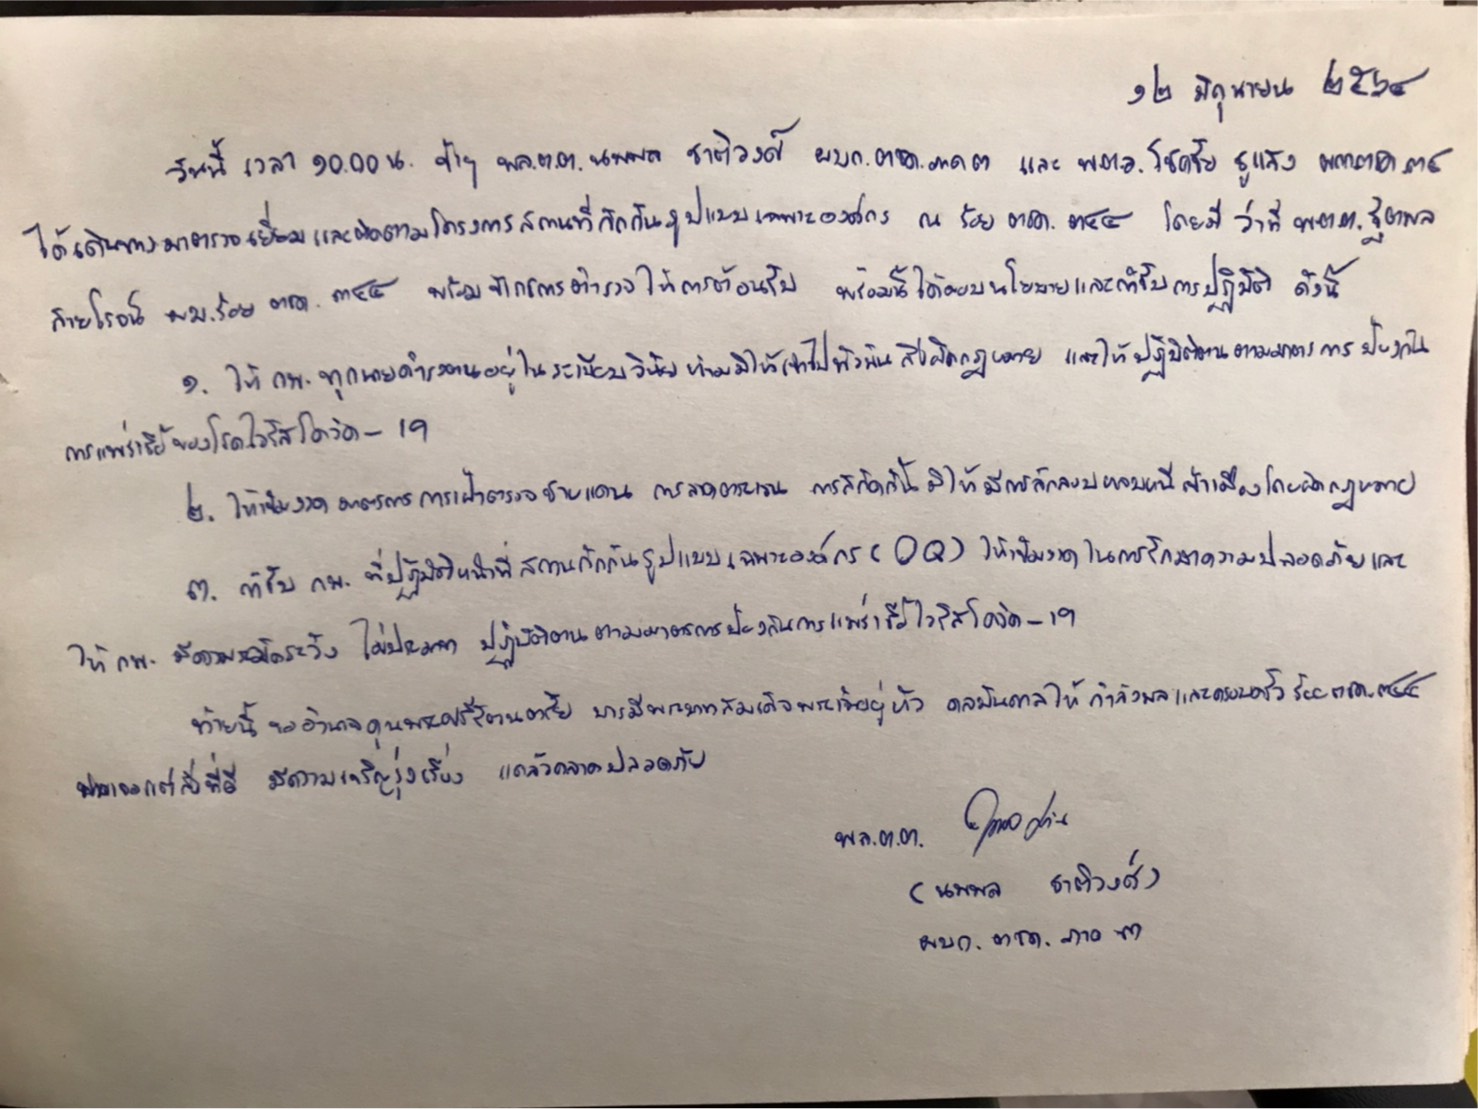 ๑๒ มิถุนายน ๒๕๖๔
วันนี้ เวลา ๑๐.๐๐ น. ข้าฯ พล.ต.ต. นพพล ชาติวงศ์ ผบก.ตชด.ภาค ๓ และ พ.ต.อ. โชคชัย ชูแสง ผกก.ตชด.๓๔
ได้เดินทางมาตรวจเยี่ยมและติดตามโครงการสถานที่กักกันรูปแบบเฉพาะองค์กร ณ ร้อย ตชด. ๓๔๔ โดยมี ว่าที่ พ.ต.ต. ฐิตพล
สายโรจน์ ผบ.ร้อย ตชด. ๓๔๔ พร้อมข้าราชการตำรวจให้การต้อนรับ พร้อมนี้ได้มอบนโยบายและกำชับการปฏิบัติ ดังนี้
๑. ให้ กพ. ทุกนายดำรงตนอยู่ในระเบียบวินัย ห้ามมิให้เข้าไปพัวพันสิ่งผิดกฎหมาย และให้ปฏิบัติตนตามมาตรการป้องกัน
การแพร่เชื้อของโรคไวรัสโควิด - 19
๒. ให้เข้มงวดมาตรการการเฝ้าตรวจชายแดน การลาดตระเวน การสกัดกั้นมิให้มีการลักลอบหลบหนีเข้าเมืองโดยผิดกฎหมาย
๓. กำชับ กพ. ที่ปฏิบัติหน้าที่สถานกักกันรูปแบบเฉพาะองค์กร (OQ) ให้เข้มงวดในการรักษาความปลอดภัยและ
ให้ กพ. มีความระมัดระวัง ไม่ประมาท ปฏิบัติตนตามมาตรการป้องกันการแพร่เชื้อไวรัสโควิด - 19
ท้ายนี้ ขออำนาจคุณพระศรีรัตนตรัย บารมีพระบาทสมเด็จพระเจ้าอยู่หัว ดลบันดาลให้กำลังพลและครอบครัว ร้อย ตชด. ๓๔๔
พบเจอแต่สิ่งที่ดี มีความเจริญรุ่งเรือง แคล้วคลาดปลอดภัย
พล.ต.ต.
(นพพล ชาติวงศ์)
ผบก. ตชด. ภาค ๓